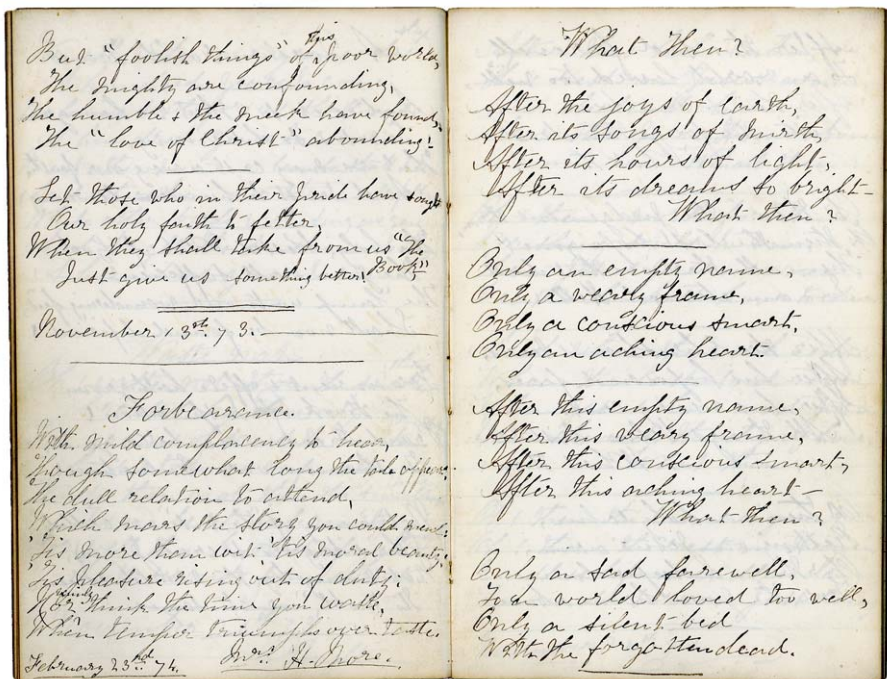 But "foolish things" of this poor world,
The mighty are confounding,
The humble & the meek have found,
The "love of Christ" abounding!
Let those who in their pride have sought
Our holy faith to fetter,
When they shall take from us "The Book"
Just give us something better!
November 13th. 73.
Forbearance.
With mild complacency to hear,
Though somewhat long the tale appear.
The dull relation to attend,
Which mars the story you could mend;
'Tis more than wit 'tis moral beauty,
'Tis pleasure rising out of duty;
Nor vainly think the time you waste,
When temper triumphs over taste.
February 23rd 74. Mrs. H. More.
What then?
After the joys of earth,
After its songs of mirth,
After its hours of light,
After its dreams so bright—
What then?
Only an empty name,
Only a weary frame,
Only a conscious smart,
Only an aching heart.
After this empty name,
After this weary frame,
After this conscious smart,
After this aching heart—
What then?
Only a sad farewell,
To a world loved too well,
Only a silent bed
With the forgotten dead.